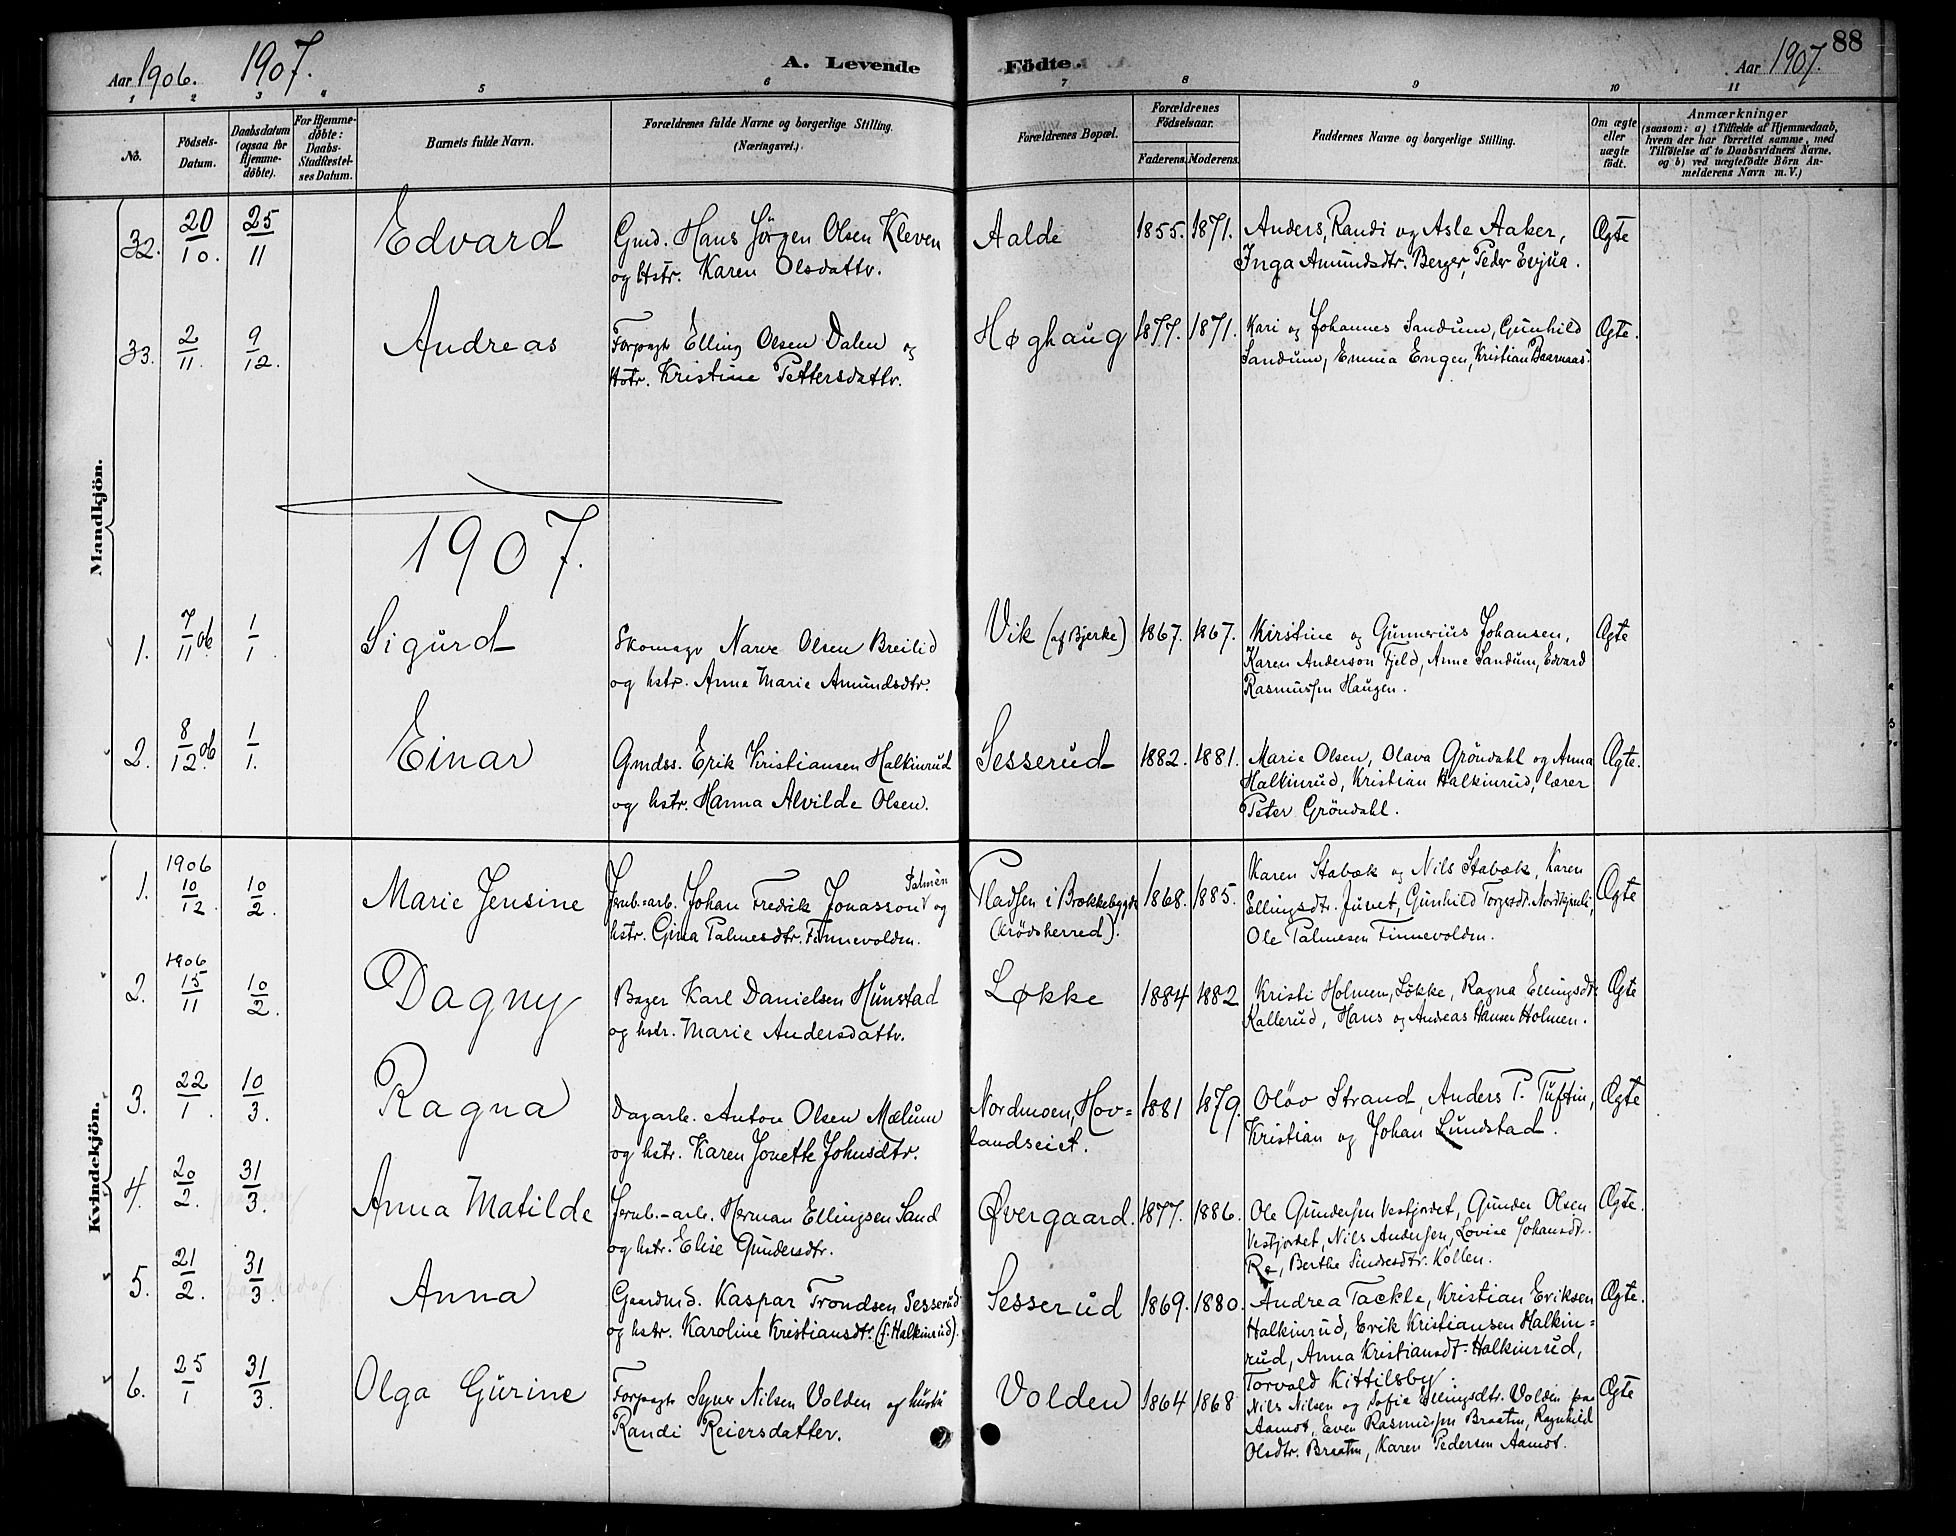 Aar 1906. 1907. A. Levende Födte. Aar 1907. 88
1 2 3 4 5 6 7 8 9 10 11
No.
Födsels-
Datum.
Daabsdatum
(ogsaa for
Hjemme-
döbte).
For Hjemme-
döbte:
Daabs-
Stadfæstel-
ses Datum.
Barnets fulde Navn.
Forældrenes fulde Navne og borgerlige Stilling.
(Næringsvei.)
Forældrenes Bopæl.
Forældrenes
Födselsaar.
Faderens. Moderens.
Faddernes Navne og borgerlige Stilling.
Om ægte
eller
uægte
födt.
Anmærkninger
(saasom: a) i Tilfælde af Hjemmedaab,
hvem der har forrettet samme, med
Tilföielse af to Daabsvidners Navne,
og b) ved uægtefödte Börn An-
melderens Navn m. V.)
Mandkjön.
32. 20/10. 25/11 Edvard Gmd. Hans Jörgen Olsen Kleven Aalde 1855. 1871. Anders, Randi og Asle Aaker, Ægte
og Hstr. Karen Olsdattr. Inga Amundsdtr. Berger, Peder Evjua.
33. 2/11. 9/12. Andreas Forpagtr Elling Olsen Dalen og Høghaug 1877. 1871. Kari og Johannes Sandum, Gunhild Ægte.
Hstr. Kristine Pettersdattr. Sandum, Emma Engen, Kristian Baarnaas.
1907.
1. 7/11 06. 1/1 Sigurd Skomagr Narve Olsen Breilid Vik (af Bjerke) 1867. 1867. Kirstine og Gunnerius Johansen, Ægte
og hstr. Anne Marie Amundsdtr. Karen Anderson Fjeld, Anne Sandum, Edvard
Rasmussen Haugen.
2. 8/12. 06 1/1. Einar Gmdss. Erik Kristiansen Halkinrud Sesserud 1882. 1881. Marie Olsen, Olava Gröndahl og Anna Ægte.
og hstr. Hanna Alvilde Olsen. Halkinrud, Kristian Halkinrud, lærer
Peter Gröndahl.
Kvindekjön.
1. 1906 10/12. 10/2. Marie Jensine Jernb.-arb. Johan Fredrik Jonasson Palmén og Pladsen i Brokkebygda 1868. 1885. Karen Stabæk og Nils Stabæk, Karen Ægte
hstr. Gina Palmesdtr. Finnevolden. (Krödsherred). Ellingsdtr. Juvet, Gunhild Torgesdtr. Nordkjenli,
Ole Palmesen Finnevolden.
2. 1906 15/11 10/2. Dagny Bager Karl Danielsen Hunstad Løkke 1884 1882 Kristi Holmen, Løkke, Ragna Ellingsdtr. Ægte
og hstr. Marie Andersdattr. Kallerud, Hans og Andreas Hansen Holmen.
3. 22/1. 10/3. Ragna Dagarb. Anton Olsen Mælum Nordmoen, Hov= 1881 1879. Olöv Strand, Anders P. Tuftin, Ægte
og hstr. Karen Jonette Johnsdtr. landseiet. Kristian og Johan Lundstad.
4. 20/2. 31/3. Anna Matilde Jernb.-arb. Herman Ellingsen Sand Øvergaard. 1877. 1886. Ole Gundersen Vestjordet, Gunder Olsen Ægte.
og hstr. Elise Gundersdtr. Vestjordet, Nils Andersen, Lovise Johansdtr.
Re, Berthe Sindresdtr. Kollen.
5. 21/2. 31/3. Anna Gaardmd. Kaspar Trondsen Sesserud Sesserud 1869. 1880. Andrea Tackle, Kristian Eriksen Ægte.
og hstr. Karoline Kristiansdtr. (f. Halkinrud). Halkinrud, Erik Kristiansen Halkin=
rud, Anna Kristiansdtr Halkinrud,
Torvald Kittilsby.
6. 25/1 31/3. Olga Gurine Forpagtr Syver Nilsen Volden og hustru Volden 1864 1868 Nils Nilsen og Sofie Ellingsdtr. Volden paa Ægte
Randi Reiersdatter. Aamot, Even Rasmussen Braaten, Ragnhild
Olsdtr. Braaten, Karen Pedersen Aamot.